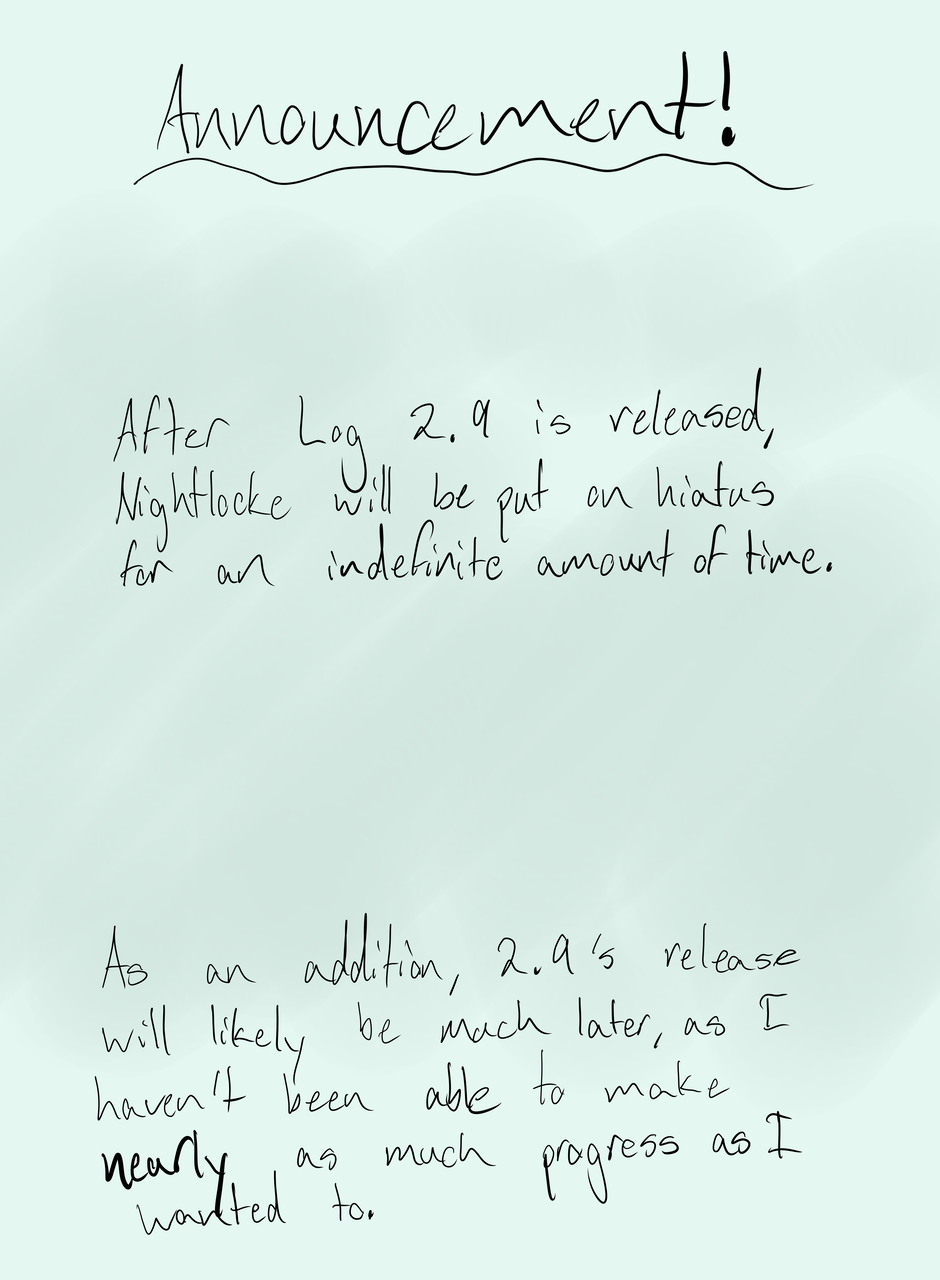 Announcement!
After Log 2.9 is released,
Nightlocke will be put on hiatus
for an indefinite amount of time.
As an addition, 2.9's release
will likely be much later, as I
haven't been able to make
nearly as much progress as I
wanted to.